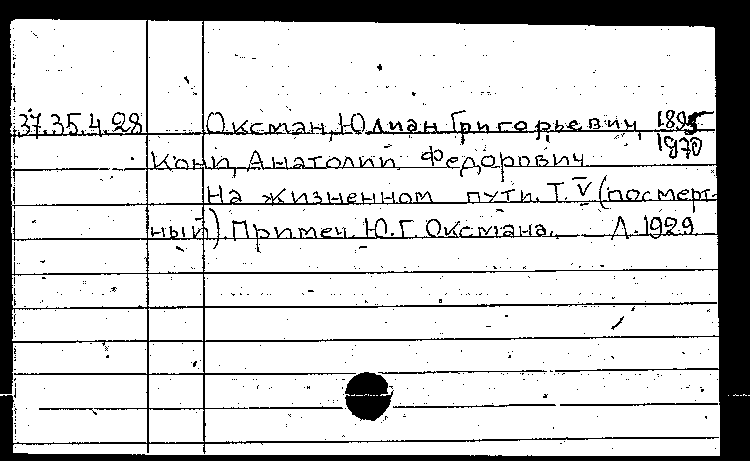 37.35.4.28 Оксман, Юлиан Григорьевич, 1895
1970
Кони, Анатолий Федорович
На жизненном пути. Т. V (посмерт-
ный). Примеч. Ю.Г. Оксмана. Л. 1929